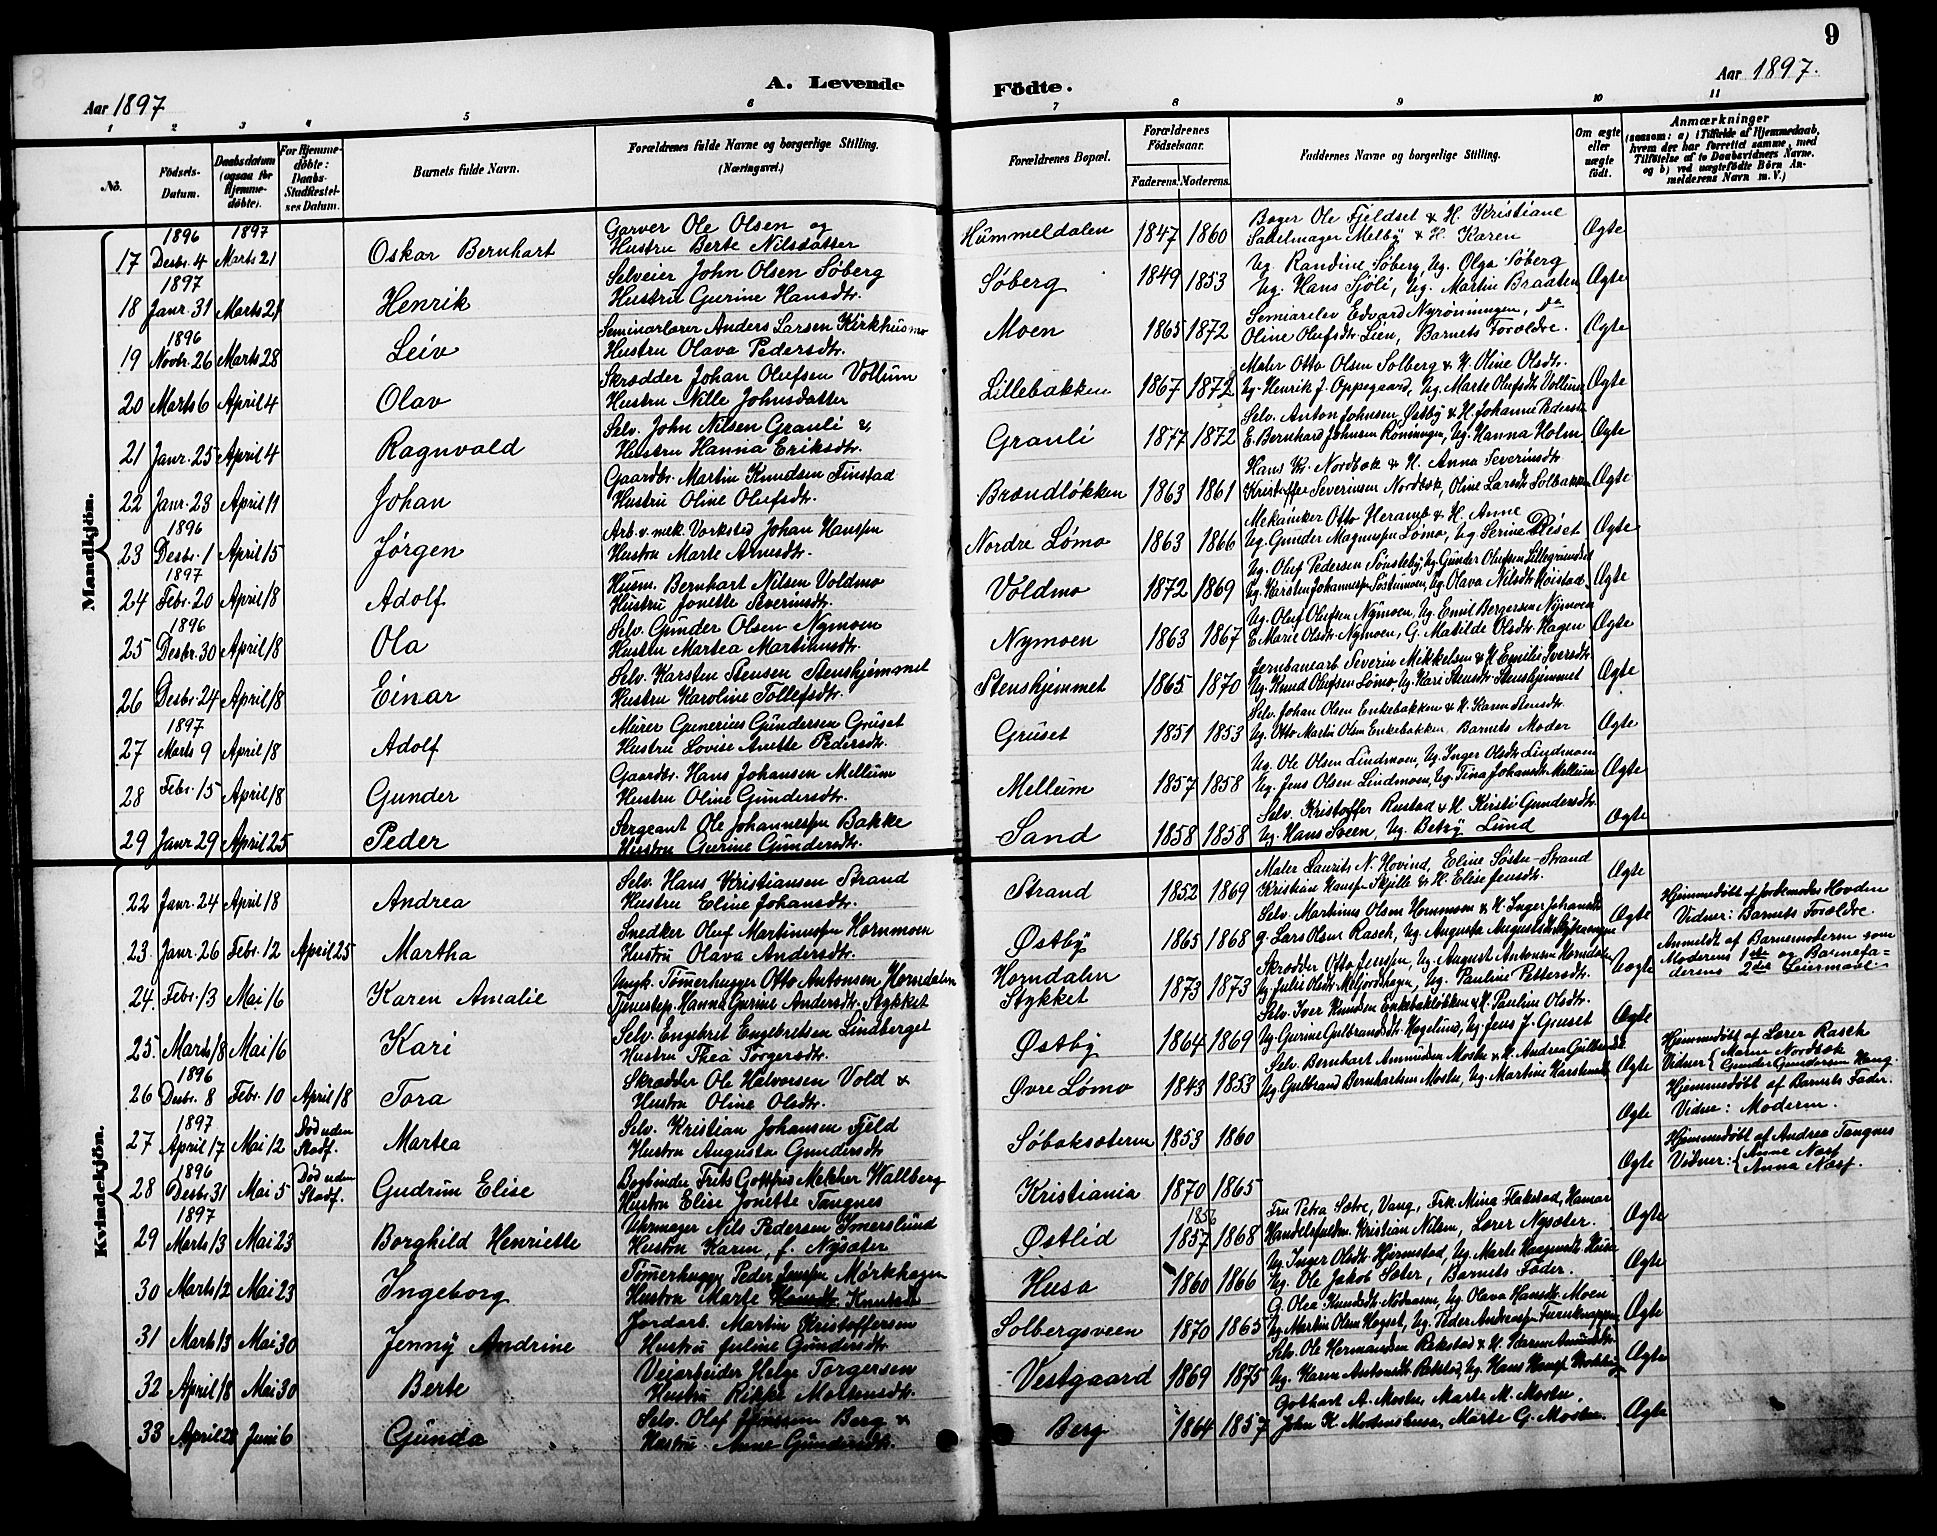 9
A. Levende Födte.
Aar 1897
Aar 1897.
1 2 3 4 5 6 7 8 9 10 11
No. Födsels-Datum. Daabsdatum (ogsaa for Hjemmedöbte). For Hjemmedöbte: Daabs-Stadfæstelses Datum. Barnets fulde Navn. Forældrenes fulde Navne og borgerlige Stilling. (Næringsvei.) Forældrenes Bopæl. Forældrenes Födselsaar. Faderens. Moderens. Faddernes Navne og borgerlige Stilling. Om ægte eller uægte födt. Anmærkninger (saasom: a) i Tilfælde af Hjemmedaab, hvem der har forrettet samme, med Tilföielse af to Daabsvidners Navne. og b) ved uægtefödte Börn Anmelderens Navn m. V.)
Mandkjön.
1896 1897 Garver Ole Olsen og Bager Ole Fjeldset & H. Kristiane
17 Desbr. 4 Marts 21 Oskar Bernhart Hustru Berte Nilsdatter Hummeldalen 1847 1860 Sadelmager Melby & H. Karen Ægte
1897 Selveier John Olsen Söberg Ug. Randine Söberg, Ug. Olga Söberg
18 Janr. 31 Marts 21 Henrik Hustru Gurine Hansdtr. Söberg 1849 1853 Ug. Hans Sjöli, Ug. Martin Braaten Ægte
1896 Seminarlærer Anders Larsen Kirkhusmo Semiarelev Edvard Nyröningen, do
19 Novbr. 26 Marts 28 Leiv Hustru Olava Pedersdtr. Moen 1865 1872 Oline Olufsdtr Lien, Barnets Forældre. Ægte
Skrædder Johan Olufsen Vollum Maler Otto Olsen Solberg & H. Oline Olsdtr.
20 Marts 6 April 4 Olav Hustru Nille Johnsdatter Lillebakken 1867 1872 Ug. Henrik J. Oppegaard, Ug. Marte Olufsdtr Vollum Ægte
Selv. John Nilsen Granli & Selv. Anton Johnsen Østby & H. Johanne Pedersd
21 Janr. 25 April 4 Ragnvald Hustru Hanna Eriksdtr. Granli 1877 1872 E. Bernhard Johnsen Röningen, Ug. Hanna Holm Ægte
Gaardbr. Martin Knudsen Finstad Hans Kr. Nordbæk & H. Anna Severinsdtr.
22 Janr. 23 April 11 Johan Hustru Oline Olufsdtr. Brændlökken 1863 1861 Kristoffer Severinsen Nordbæk, Oline Larsdtr Solbakken Ægte
1896 Arb. v. mek. Værksted Johan Hanssen Mekaniker Otto Heramb & H. Anne
23 Desbr. 1 April 15 Jörgen Hustru Marte Arnesdtr. Nordre Lömo 1863 1866 Ug. Gunder Magnussen Lömo, Ug Serine Diset Ægte
1897 Husm. Bernhart Nilsen Voldmo Ug. Oluf Pedersen Sönsteby, Ug. Gunder Olufsen Lillegrundset
24 Febr. 20 April 18 Adolf Hustru Jonette Severinsdtr. Voldmo 1872 1869 Ug. Karsten Johannessen Töstumoen, Ug. Olava Nilsdtr Röistad Ægte
1896 Selv. Gunder Olsen Nymoen Ug. Oluf Olufsen Nymoen, Ug. Emil Bergersen Nymoen
25 Desbr. 30 April 18 Ola Hustru Martea Martinusdtr. Nymoen 1863 1867 E. Marie Olsdtr Nymoen, G. Matilde Olsdtr. Hagen Ægte
Selv. Karsten Stensen Stenshjemmet Jernbanearb Severin Mikkelsen & H Emilie Iversdtr
26 Desbr. 24 April 18 Einar Hustru Karoline Tollefsdtr. Stenshjemmet 1865 1870 Ug. Knud Olufsen Lömo, Ug. Kari Stensdtr Stenshjemmet Ægte
1897 Murer Gunerius Gundersen Gruset Selv. Johan Olsen Enkebakken & H. Karen Stensdtr.
27 Marts 9 April 18 Adolf Hustru Lovise Anette Pedersdtr. Gruset 1851 1853 Ug. Otto Martin Olsen Enkebakken. Barnets Moder Ægte
Gaardbr. Hans Johansen Mellum Ug. Ole Olsen Lindmoen, Ug. Inger Olsdtr Lindmoen
28 Febr. 15 April 18 Gunder Hustru Oline Gundersdtr. Mellum 1857 1858 Ug. Jens Olsen Lindmoen, Ug. Tina Johansdtr Mellum Ægte
Sergeant Ole Johannessen Bakke Selv. Kristoffer Rustad & H. Kirsti Gundersdtr.
29 Janr 29 April 25 Peder Hustru Gurine Gundersdtr. Sand 1858 1858 Ug. Hans Sveen, Ug. Betsy Lund Ægte
Kvindekjön.
Selv. Hans Kristiansen Strand Maler Laurits N. Hovind, Eline Söstu-Strand
22 Janr. 24 April 18 Andrea Hustru Eline Johansdtr. Strand 1852 1869 Kristian Hansen Skjille & H. Elise Jensdtr. Ægte
Snedker Oluf Martinussen Hornmoen Selv. Martinus Olsen Hornmoen & H. Inger Johansdtr Hjemmedöbt af Jordemoder Hovden
23. Janr. 26 Febr. 12 April 25 Martha Hustru Olava Andersdtr. Østby 1865 1868 G. Lars Olsen Rasch, Ug. Augusta Ægte Vidner: Barnets Forældre.
Ungk. Tömmerhugger Otto Antonsen Horndalen Skrædder Otto Jenssen, Ug. August Antonsen Horndalen Anmeldt af Barnemoderen som
24. Febr. 13 Mai 16 Karen Amalie Tjenestep. Hanna Gurine Andersdtr. Stykket Horndalen Stykket 1873 1873 Ug. Julie Olsdtr Meljordshagen, Ug. Pauline Pettersdtr. Uægte Moderens 1ste og Barnefaderens 2det Leiermaal.
Selv. Engebret Engebretsen Lindberget Selv. Iver Knudsen Enkebaklökken & H. Pauline Olsdtr.
25. Marts 18 Mai 16 Kari Hustru Thea Torgersdtr. Østby 1864 1869 Ug. Gurine Gulbrandsdtr. Hagelund, Ug. Jens J. Gruset Ægte
1896 Skrædder Ole Halvorsen Vold & Selv. Bernhart Amundsen Mostu & H. Andrea Gulbrandsd Hjemmedöbt af Lærer Rasch
26 Desbr. 8 Febr. 10 April 18 Tora Hustru Oline Olsdtr. Øvre Lömo 1843 1853 Ug. Gulbrand Bernhartsen Mostu, Ug. Martine Karstensd Ægte Vidner { Marne Nordbæk Gunder Gundersen Haug.
1897 Död uden Stadf. Selv. Kristian Johansen Fjeld Hjemmedöbt af Barnets Fader.
27 April 17 Mai 12 Martea Hustru Augusta Gundersdtr Söbaksæteren 1853 1860 Ægte Vidner: Moderen.
1896 Död uden Stadf. Bogbinder Frits Gottfries Melcher Wallberg Hjemmedöbt af Andrea Tangnes
28 Desbr. 31 Mai 5 Gudrun Elise Hustru Elise Jonette Tangnes Kristiania 1870 1865 Ægte Vidner: { Anne Næss. Anna Næss.
1897 Uhrmager Nils Pedersen Imerslund 1856 Fru Petra Sætre, Vang, Frk. Mina Flakstad, Hamar
29 Marts 13 Mai 23 Borghild Henriette Hustru Karen, f. Nysæter Østlid 1857 1868 Handelsfuldm. Kristian Nilsen, Lærer Nysæter. Ægte
Tömmerhugger Peder Jenssen Mörkhagen Ug. Inger Olsdtr. Hjermstad, Ug. Marte Haagensdtr. Husa
30 Marts 12 Mai 23 Ingeborg Hustru Marte Hansdtr Knutsdtr Husa 1860 1866 Ug. Ole Jakob Sæter, Barnets Fader. Ægte
Jordarb. Martin Kristoffersen G. Olea Knudsdtr. Nodaasen, Ug. Olava Hansdtr. Moen
31 Marts 13 Mai 30 Jenny Andrine Hustru Juline Gundersdtr Solbergsveen 1870 1865 Ug. Martin Olsen Hogset, Ug. Peder Andersen Furuknappen Ægte
Veiarbeider Helge Torgersen Selv. Ole Hermandsen Rekstad & H. Karen Amundsdtr.
32 April 18 Mai 30 Berte Hustru Rikke Mortensdtr. Vestgaard 1869 1875 Ug. Karen Antonsdtr Rekstad, Ug. Hans Ægte
Selv. Olaf Berg & Gothart A. Mostu, Marte M. Mostu.
33 April 28 Juni 6 Gunda Hustru Anne Gundersdtr. Berg 1864 1857 John K. Mortenshusa, Marte G. Mostu. Ægte